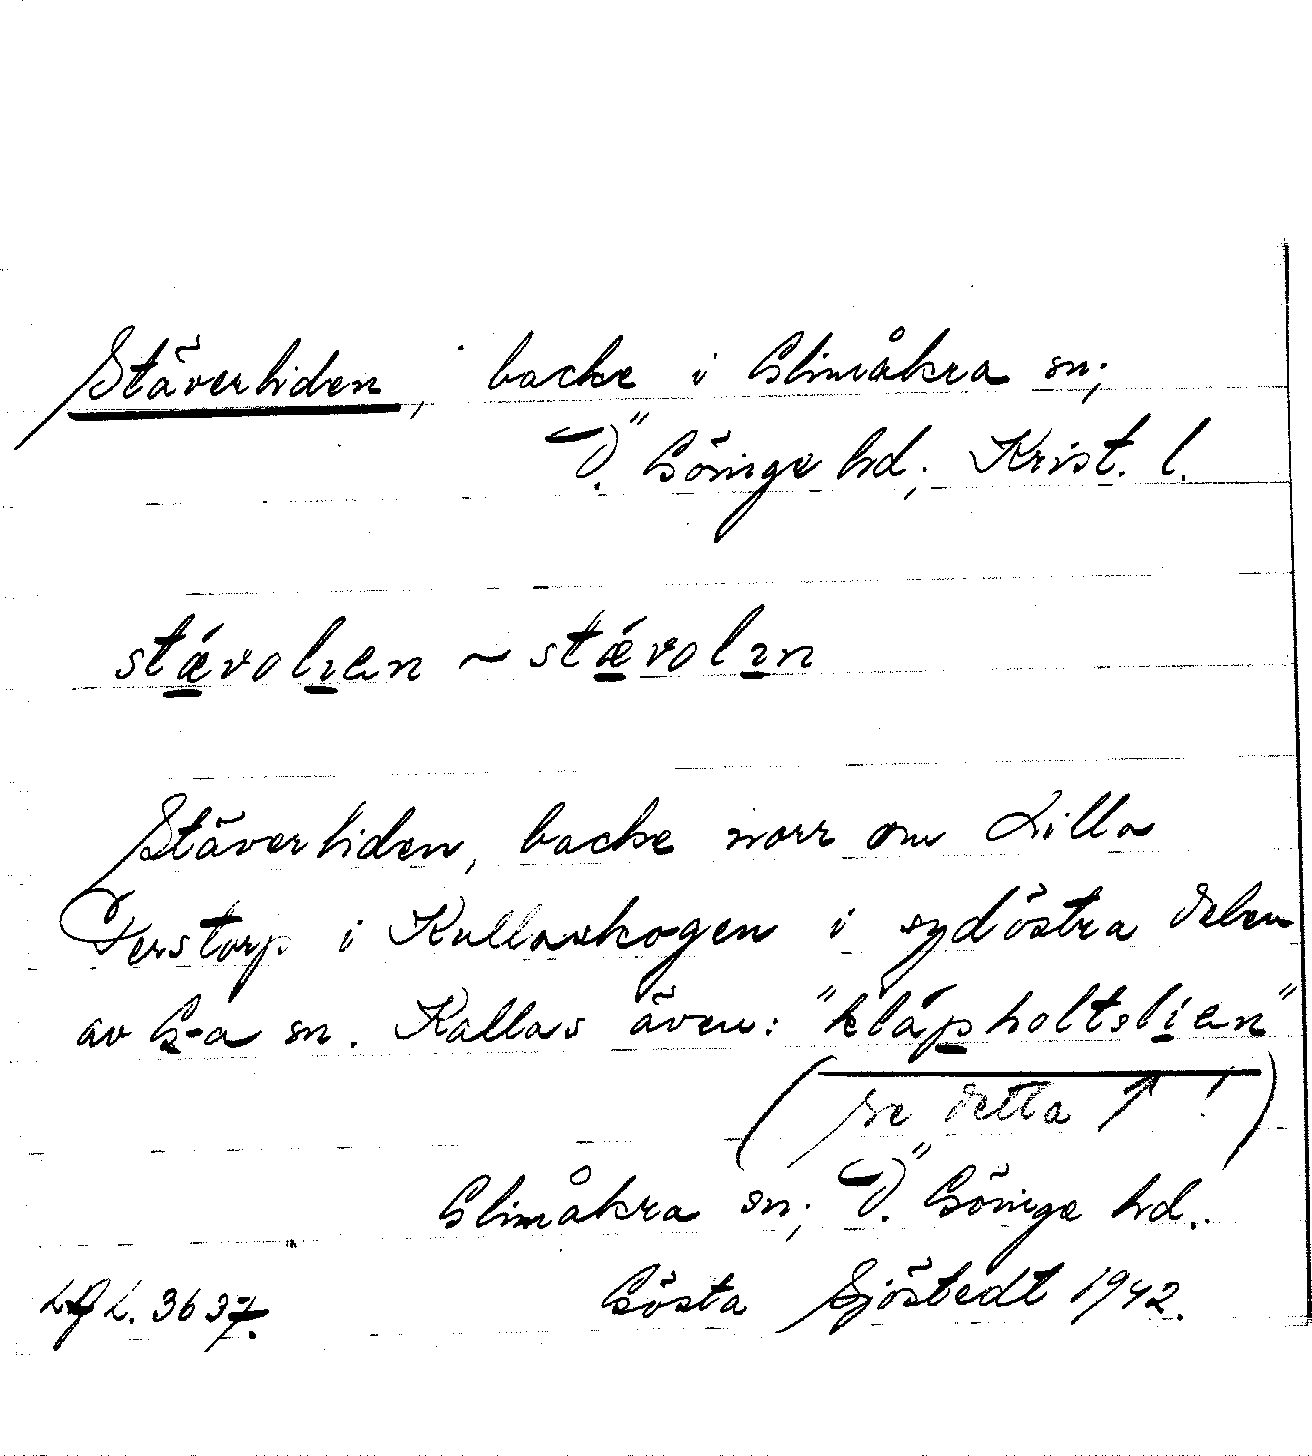 Stäverliden, backe i Glimåkra sn;
Ö. Göinge hd; Krist. l.
stævolıen ~ stævolın
Stäverliden, backe norr om Lilla
Perstorp i Kullaskogen i sydöstra delen
av G-a sn. Kallas även: "klápholtslien"
(se detta ↑ !)
Glimåkra sn; Ö. Göinge hd.
3637. Gösta Sjöstedt 1942.